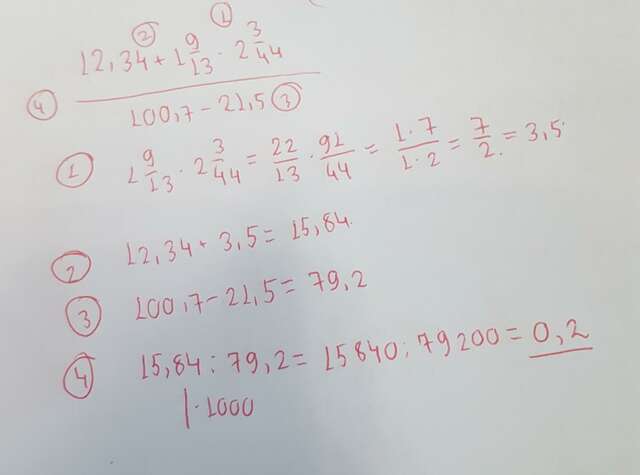 ①
②
12,34 + 1 9/13 · 2 3/44
④
100,7 - 21,5 ③
① 1 9/13 · 2 3/44 = 22/13 · 91/44 = 1·7/1·2 = 7/2 = 3,5
② 12,34 + 3,5 = 15,84
③ 100,7 - 21,5 = 79,2
④ 15,84 : 79,2 = 15840 : 79200 = 0,2
|·1000